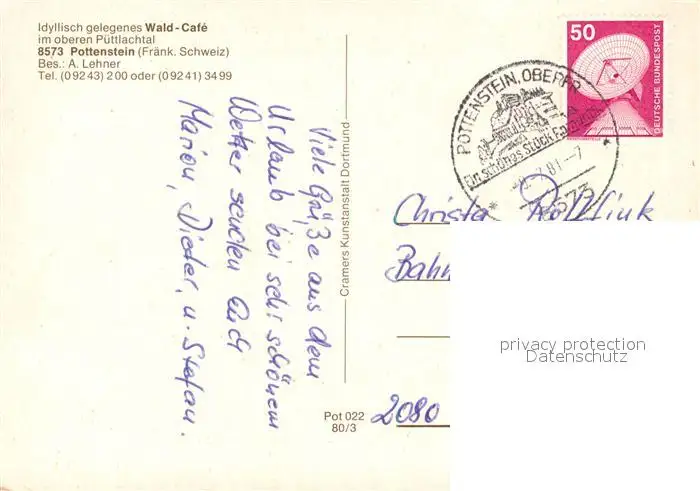 Idyllisch gelegenes Wald-Café
im oberen Püttlachtal
8573 Pottenstein (Fränk. Schweiz)
Bes.: A. Lehner
Tel. (0 92 43) 2 00 oder (0 92 41) 34 99
Viele Grüße aus dem
Urlaub bei sehr schönem
Wetter senden Euch
Marion, Dieter, u. Stefan.
Cramers Kunstanstalt Dortmund
Pot 022
80/3
50
DEUTSCHE BUNDESPOST
POTTENSTEIN, OBERFR
Ein schönes Stück
81-7
8573
Christa
Bahn
2080
privacy protection
Datenschutz